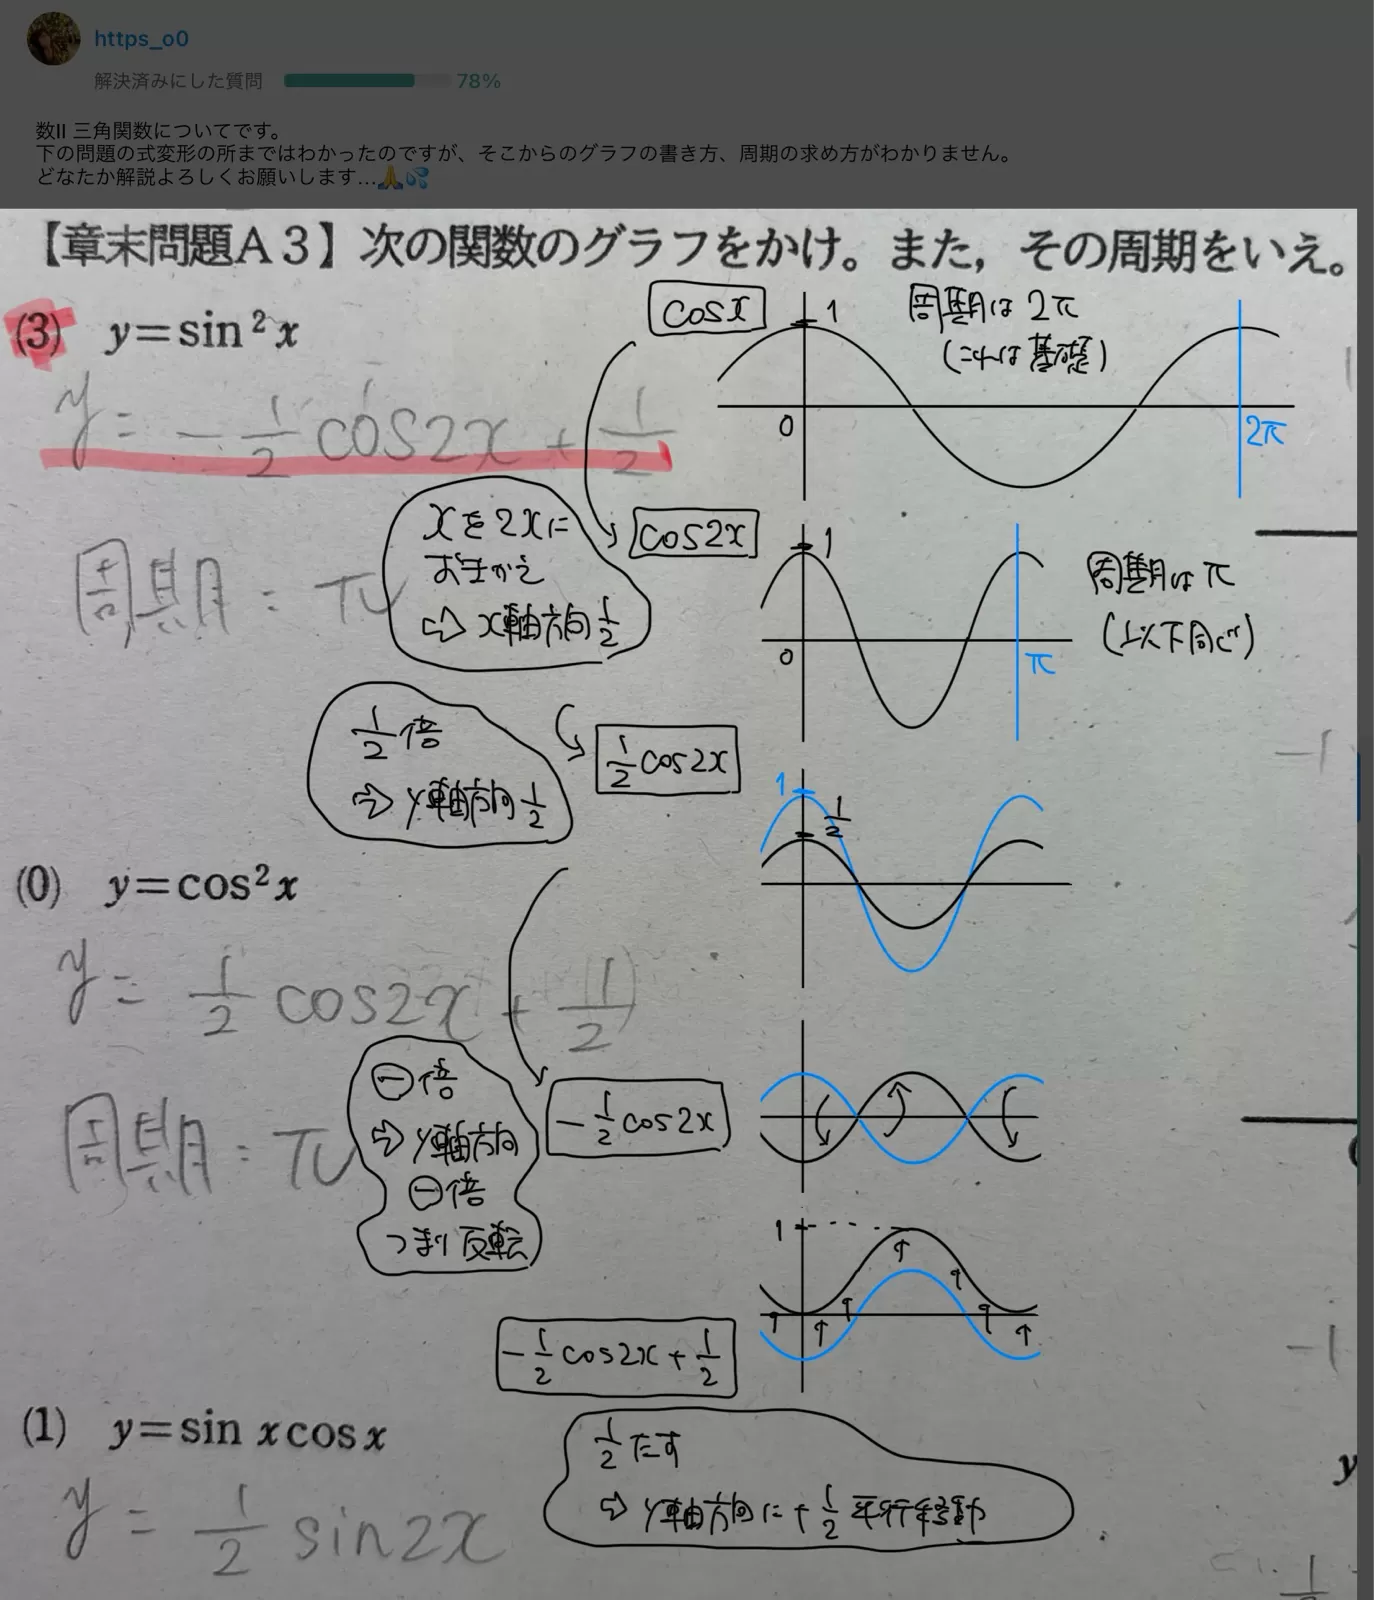 https_o0
解決済みにした質問 78%
数II 三角関数についてです。
下の問題の式変形の所まではわかったのですが、そこからのグラフの書き方、周期の求め方がわかりません。
どなたか解説よろしくお願いします...🙏💦
【章末問題A3】次の関数のグラフをかけ。また，その周期をいえ。
(3) y=sin²x
y = -1/2 cos2x + 1/2
周期：π
cosx
1
周期は2π
(これは基礎)
0
2π
xを2xに
おきかえ
⇨ x軸方向 1/2
cos2x
1
周期はπ
(以下同じ)
0
π
1/2倍
⇨ y軸方向 1/2
1/2 cos2x
1
1/2
-1
(0) y=cos²x
y = 1/2 cos2x + 1/2
周期：π
⊖倍
⇨ y軸方向
⊖倍
つまり反転
-1/2 cos2x
1
-1/2 cos2x + 1/2
-1
(1) y=sin x cos x
y = 1/2 sin2x
1/2 たす
⇨ y軸方向に + 1/2 平行移動
y